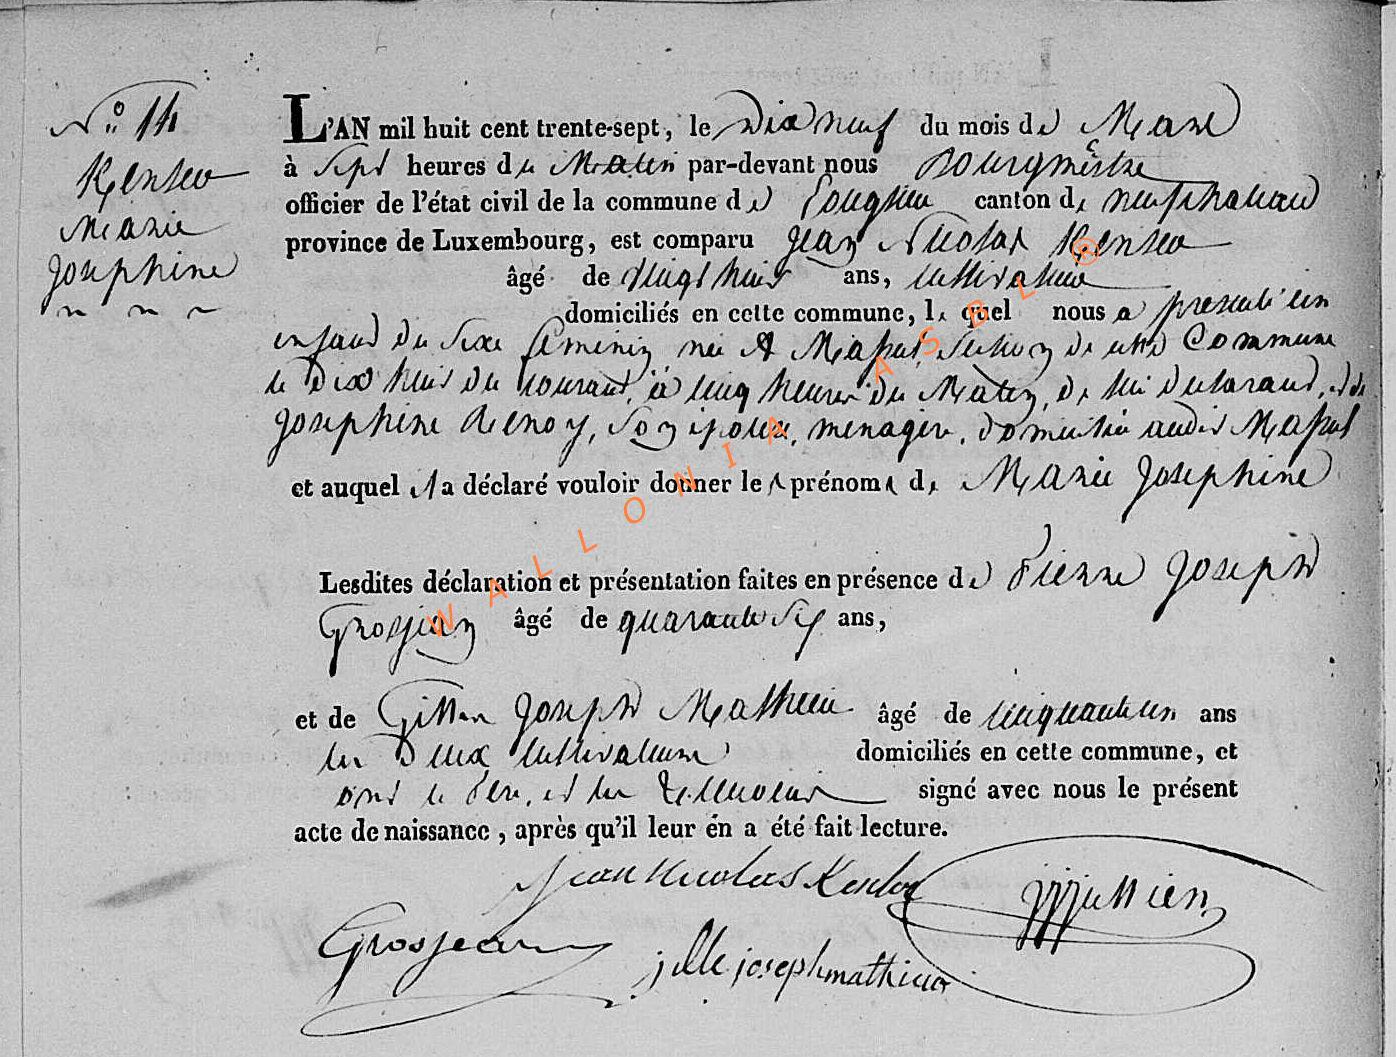 N.o 14
Kenseo
Marie
Josephine
L'AN mil huit cent trente-sept, le Dix neuf du mois de Mars
à Sept heures du Matin par-devant nous Bourgmestre
officier de l'état civil de la commune de canton de neufchateau
province de Luxembourg, est comparu Jean Nicolas
âgé de vingt huit ans, cultivateur
domiciliés en cette commune, lequel nous a presenté un
enfant du sexe feminin née A section de cette Commune
le Dix huit du courant, à cinq heures du Matin, de lui declarant, et de
Josephine, Son epouse, menagere, domiciliée audit
et auquel il a déclaré vouloir donner les prénoms de Marie Josephine
Lesdites déclaration et présentation faites en présence de Pierre Joseph
Grosjean âgé de quarante six ans,
et de Joseph Mathieu âgé de cinquante un ans
les Deux cultivateurs domiciliés en cette commune, et
ont le Père, et les temoins signé avec nous le présent
acte de naissance, après qu'il leur én a été fait lecture.
Jean Nicolas
Grosjean
joseph mathieu
WALLONIA ASBL ®